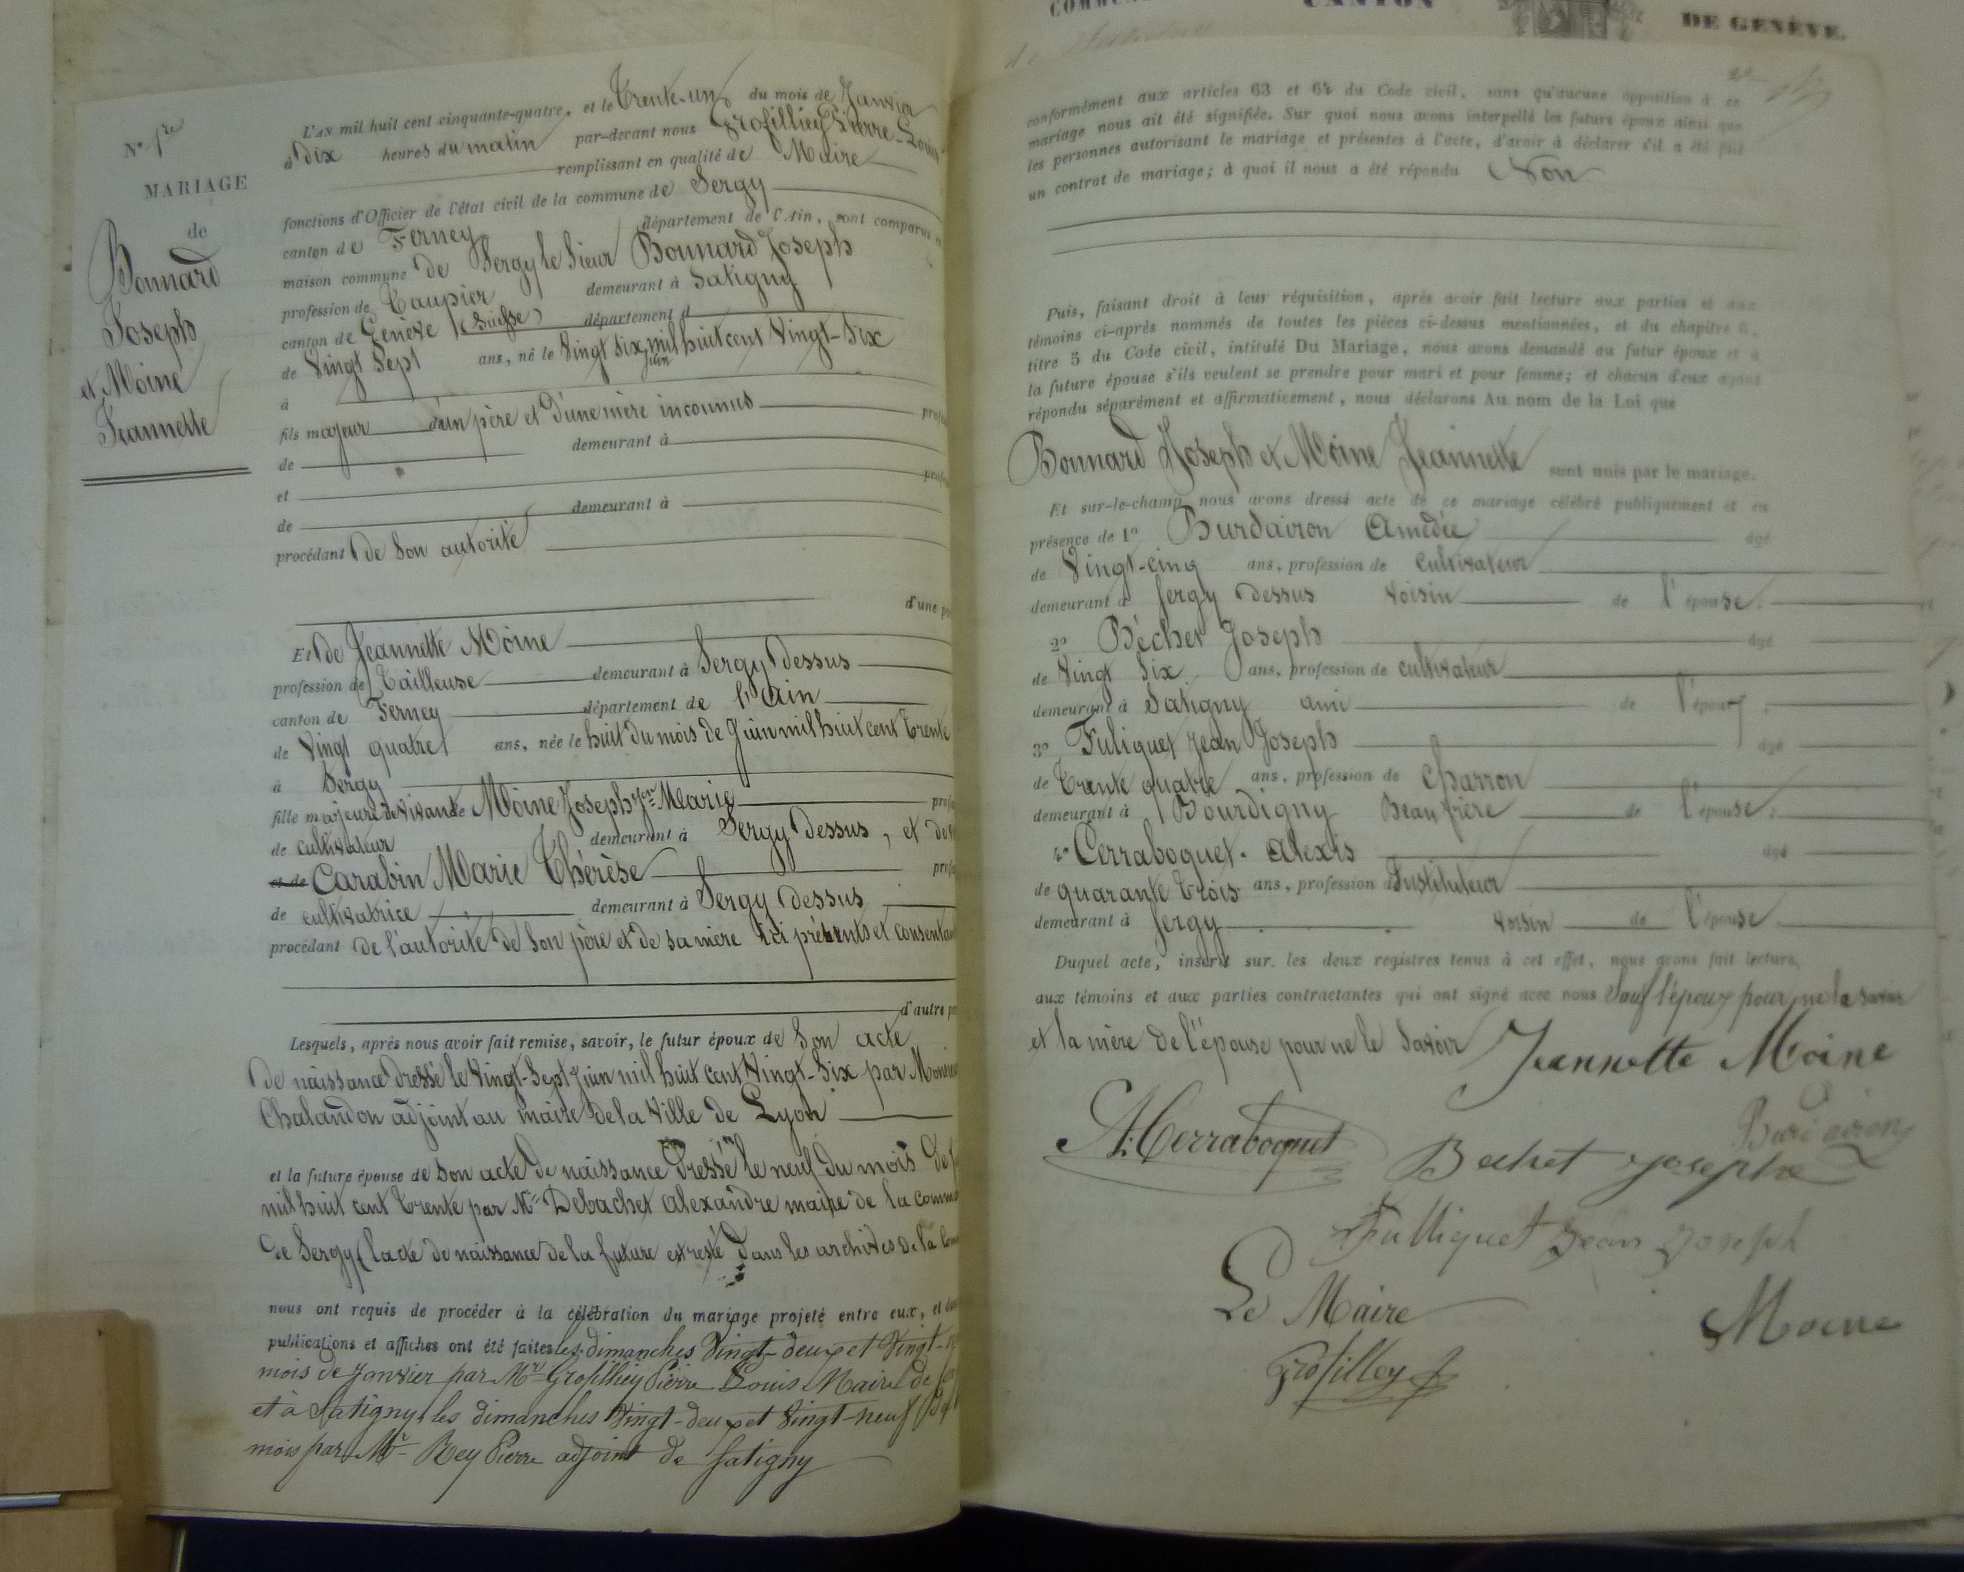 N° 1re
MARIAGE
de
Bonnard
Joseph
et Moine
Jeannette
L'AN mil huit cent cinquante-quatre, et le Trente-un du mois de Janvier
à dix heures du matin par-devant nous Grosfilliey Pierre-Louis
remplissant en qualité de Maire
fonctions d'Officier de l'état civil de la commune de Sergy
canton de Ferney département de l'Ain, sont comparus
maison commune de Sergy le Sieur Bonnard Joseph
profession de Taupier demeurant à Satigny
canton de Genève (Suisse) département d
de Vingt Sept ans, né le Vingt Six juin mil huit cent Vingt-Six
à
fils majeur d'un père et d'une mère inconnus
de demeurant à
et
de demeurant à
procédant de Son autorité
d'une
Et de Jeannette Moine
profession de Tailleuse demeurant à Sergy Dessus
canton de Ferney département de l'Ain
de Vingt quatre ans, née le huit du mois de Juin mil huit cent Trente
à Sergy
fille majeure de vivants Moine Joseph Jn Marie
de cultivateur demeurant à Sergy Dessus, et de
et de Carabin Marie Thérèse
de cultivatrice demeurant à Sergy Dessus
procédant de l'autorité de Son père et de sa mère ici présents et consentan
d'autre
Lesquels, après nous avoir fait remise, savoir, le futur époux de Son acte
de naissance dressé le Vingt-Sept Juin mil huit cent Vingt-Six par Monsieu
Chalandon adjoint au maire de la Ville de Lyon
et la future épouse de son acte de naissance Dressé le neuf du mois de
mil huit cent Trente par Mr Debachet Alexandre maire de la comm
de Sergy (l'acte de naissance de la future est resté dans les archives de la
nous ont requis de procéder à la célébration du mariage projeté entre eux, et
publications et affiches ont été faites les dimanches Vingt-deux et Vingt-
mois de Janvier par Mr Grosfilliey Pierre Louis Maire de
et à Satigny les dimanches Vingt-deux et Vingt-neuf
mois par Mr Rey Pierre adjoint de Satigny
CANTON
DE GENÈVE.
conformément aux articles 63 et 64 du Code civil, sans qu'aucune opposition à ce
mariage nous ait été signifiée. Sur quoi nous avons interpellé les futurs époux ainsi que
les personnes autorisant le mariage et présentes à l'acte, d'avoir à déclarer s'il a été fait
un contrat de mariage; à quoi il nous a été répondu Non
Puis, faisant droit à leur réquisition, après avoir fait lecture aux parties et aux
témoins ci-après nommés de toutes les pièces ci-dessus mentionnées, et du chapitre 6,
titre 5 du Code civil, intitulé Du Mariage, nous avons demandé au futur époux et à
la future épouse s'ils veulent se prendre pour mari et pour femme; et chacun d'eux ayant
répondu séparément et affirmativement, nous déclarons Au nom de la Loi que
Bonnard Joseph et Moine Jeannette sont unis par le mariage.
Et sur-le-champ nous avons dressé acte de ce mariage célébré publiquement et en
présence de 1° Burdairon Amédée âgé
de Vingt-cinq ans, profession de cultivateur
demeurant à Sergy Dessus Voisin de l'épouse.
2° Béchet Joseph âgé
de Vingt Six ans, profession de cultivateur
demeurant à Satigny ami de l'époux.
3° Fuliquet Jean Joseph âgé
de Trente quatre ans, profession de Charron
demeurant à Bourdigny Beau frère de l'épouse.
4° Cerraboquet. Alexis âgé
de quarante Trois ans, profession d Instituteur
demeurant à Sergy Voisin de l'épouse
Duquel acte, inscrit sur les deux registres tenus à cet effet, nous avons fait lecture,
aux témoins et aux parties contractantes qui ont signé avec nous Sauf l'époux pour ne le savoir
et la mère de l'épouse pour ne le savoir Jeannette Moine
A. Cerraboquet Burdairon
Bechet Josephe
Fulliquet Jean Joseph
Le Maire Moine
Grosfilley